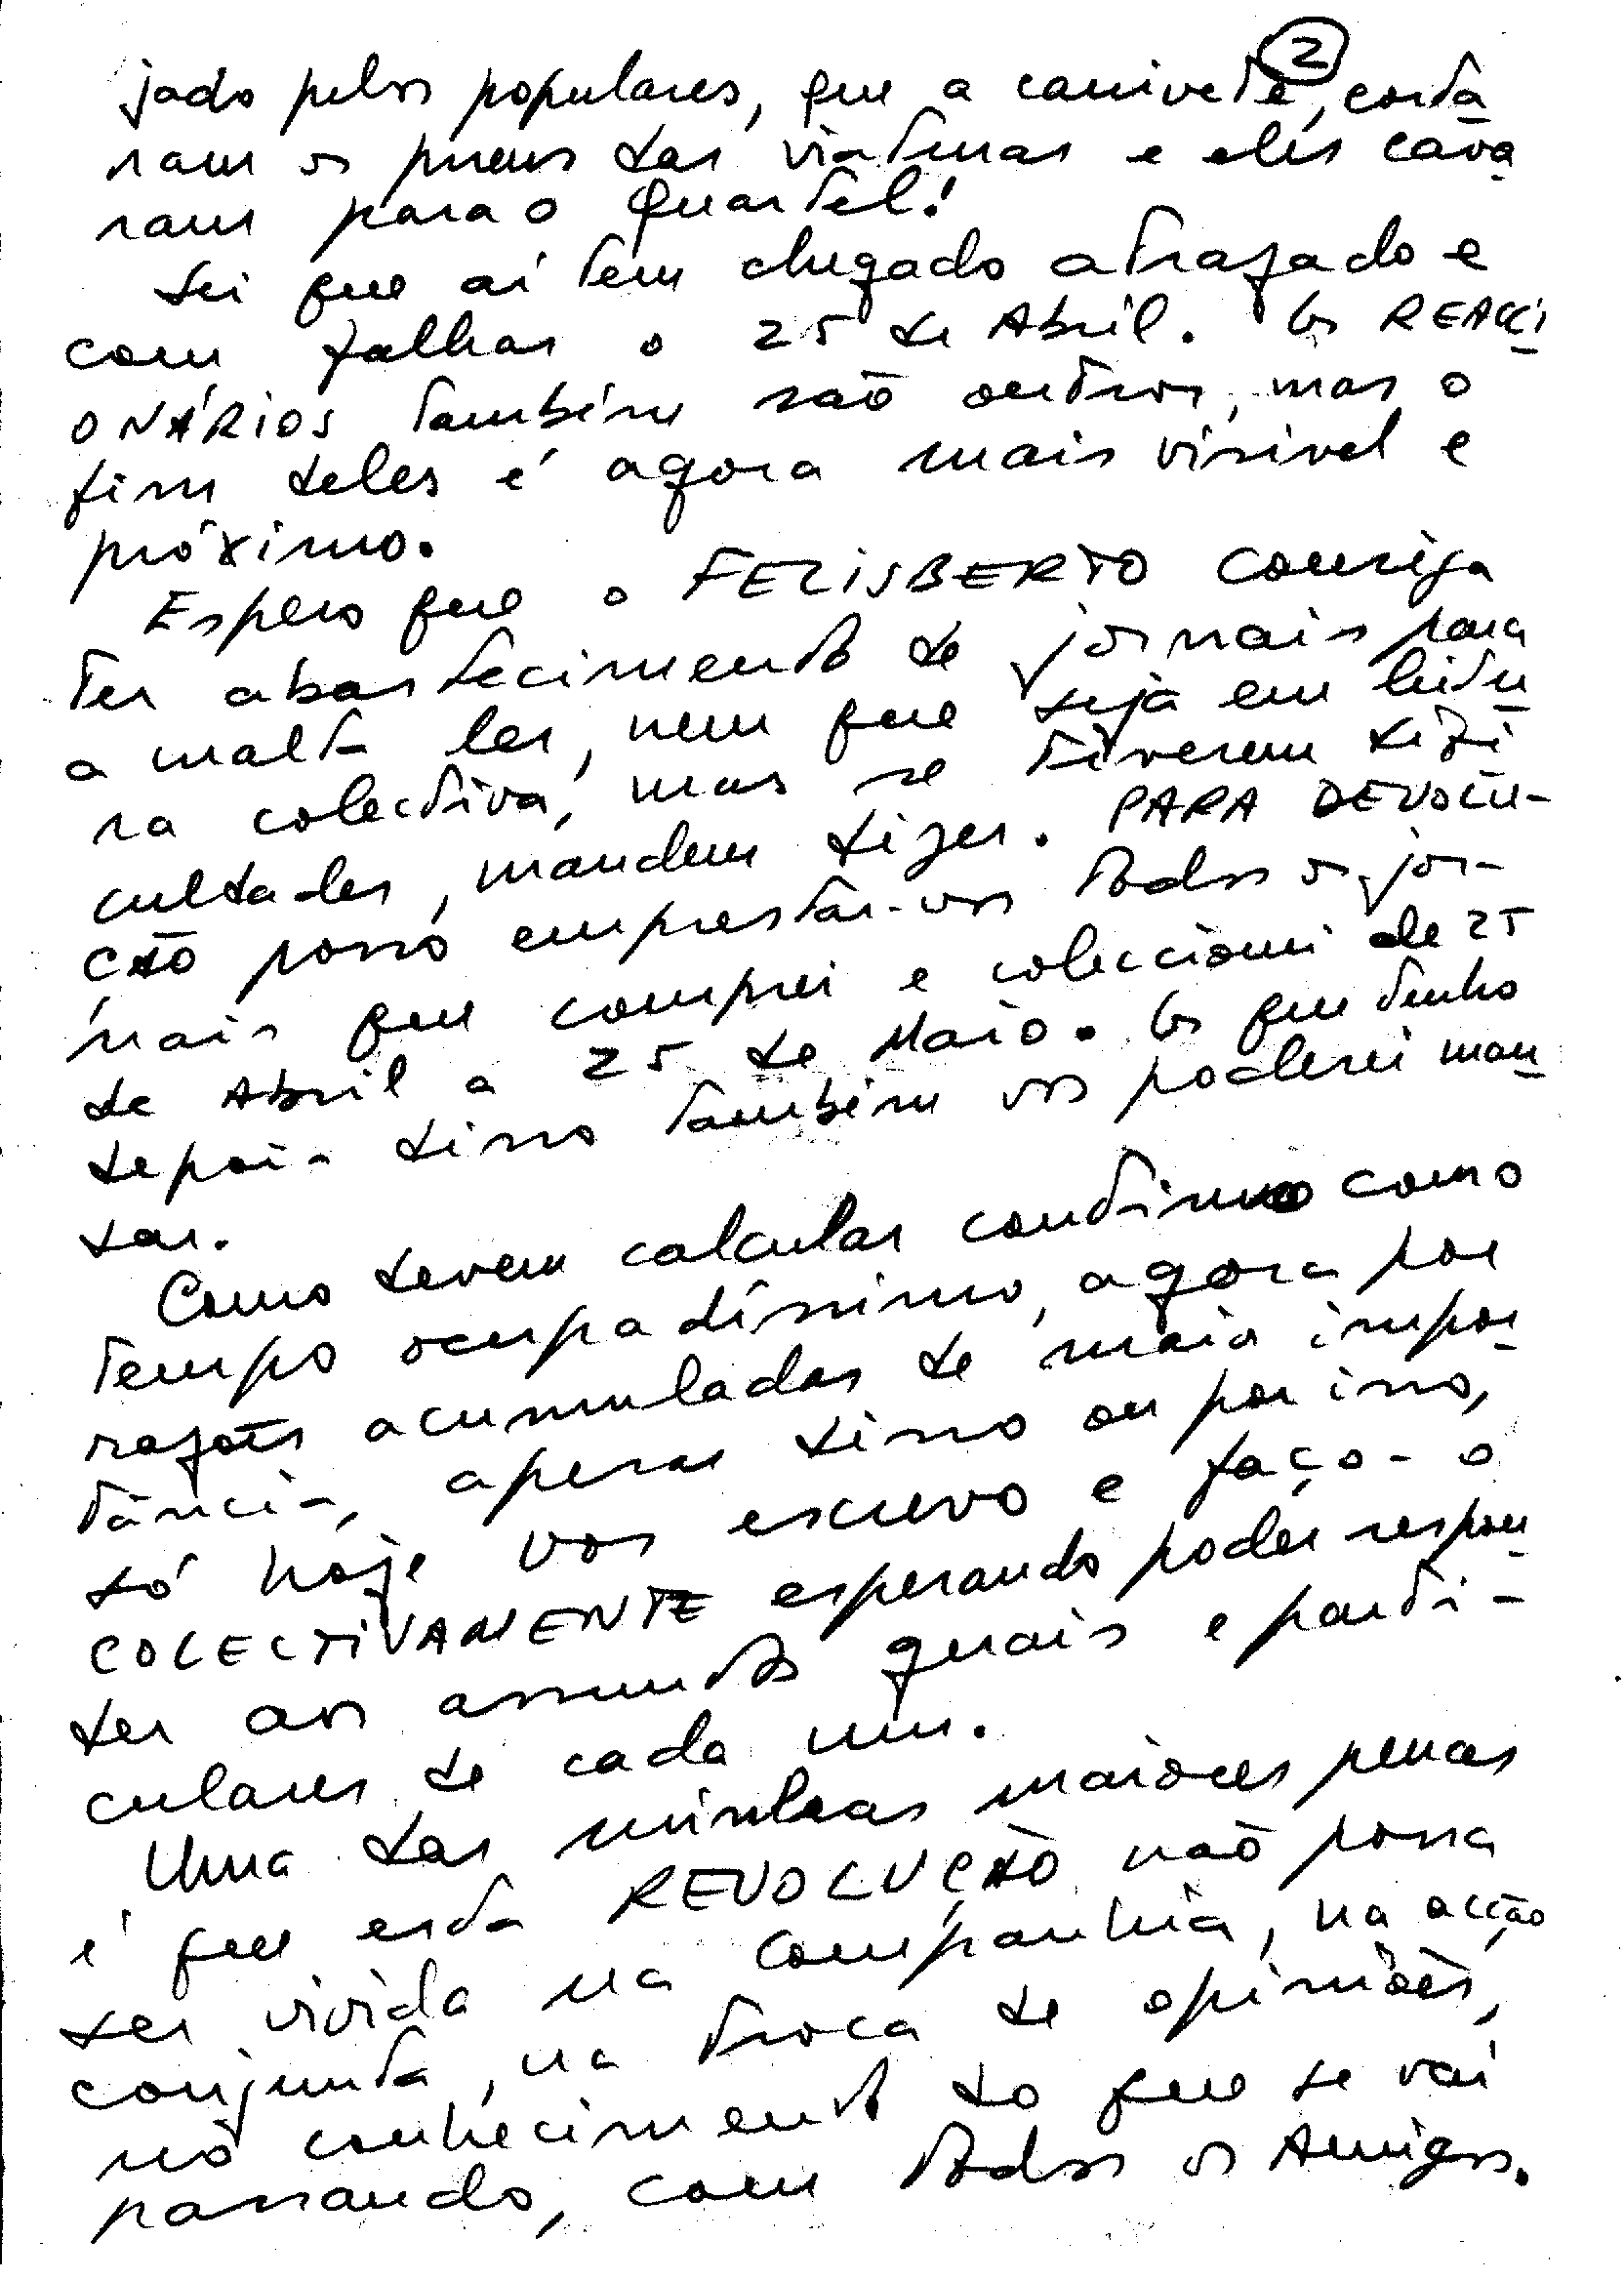 2
jado pelos populares, que a canivete, corta
ram os pneus das viaturas e eles cava
ram para o Quartel!
Sei que aí tem chegado atrazado e
com falhas o 25 de Abril. Os REACCI
ONÁRIOS também são outros, mas o
fim deles é agora mais visivel e
próximo.
Espero que o FELISBERTO consiga
ter abastecimento de jornais para
a malta ler, nem que seja em leitu
ra colectiva, mas se tiverem difi
culdades, mandem dizer. PARA DEVOLU-
ÇÃO posso emprestar-vos todos os jor-
nais que comprei e coleccionei de 25
de Abril a 25 de Maio. Os que tenho
depois disso também vos poderei man
dar.
Como devem calcular continuo como
tempo ocupadíssimo, agora por
razões acumuladas de maior impor
tância, apesar disso ou por isso,
só hoje vos escrevo e faço-o
COLECTIVAMENTE esperando poder respon
der aos assuntos gerais e parti-
culares de cada um.
Uma das minhas maiores penas
é que esta REVOLUÇÃO não possa
ser vivida na companhia, na acção
conjunta, na troca de opiniões,
no conhecimento do que se vai
passando, com todos os Amigos.